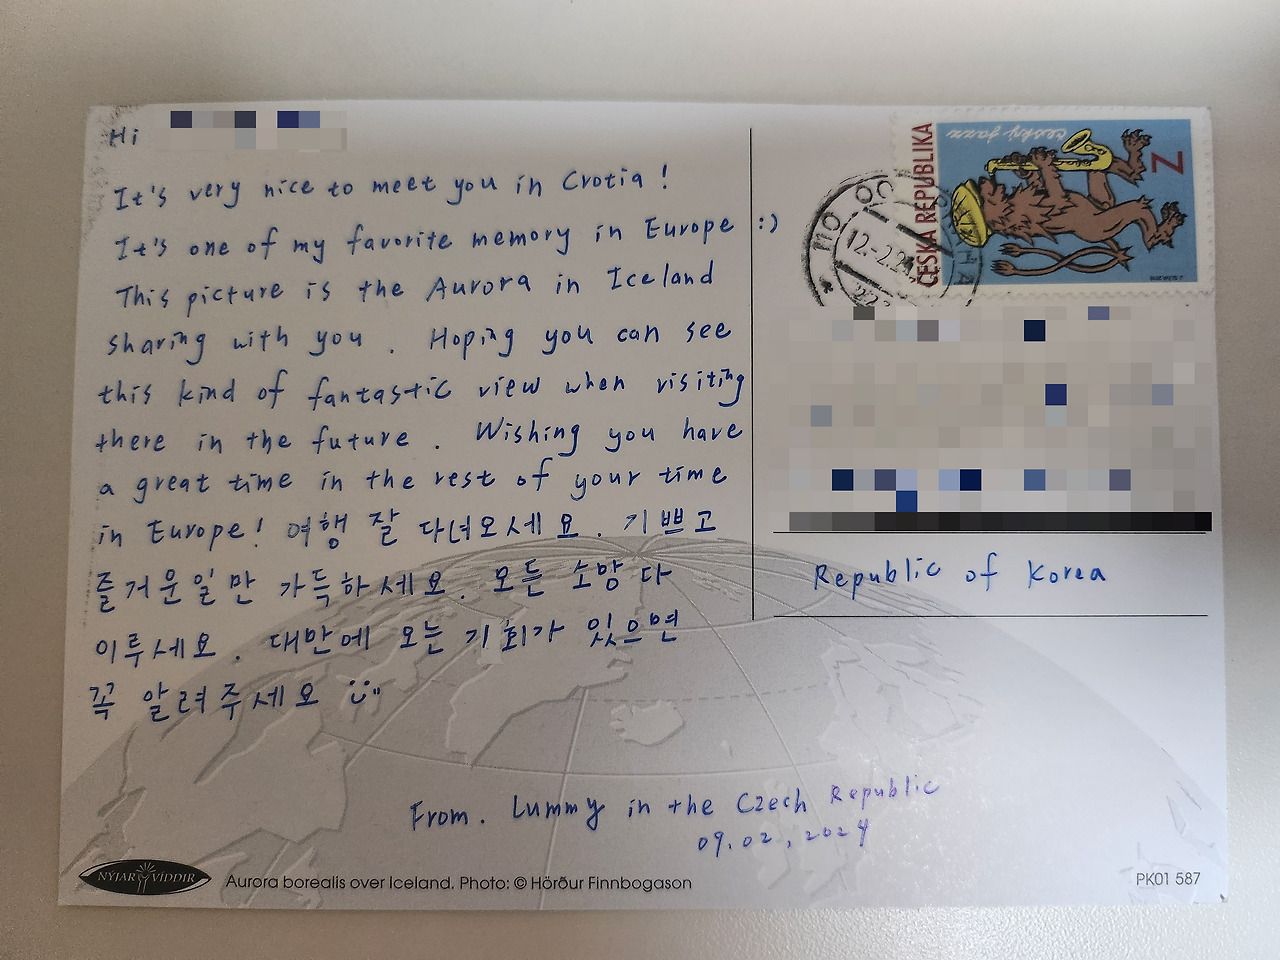 Hi
It's very nice to meet you in Crotia!
It's one of my favorite memory in Europe :)
This picture is the Aurora in Iceland
sharing with you. Hoping you can see
this kind of fantastic view when visiting
there in the future. Wishing you have
a great time in the rest of your time
in Europe! 여행 잘 다녀오세요. 기쁘고
즐거운일만 가득하세요. 모든 소망 다
이루세요. 대만에 오는 기회가 있으면
꼭 알려주세요
From. Lummy in the Czech Republic
09.02,2024
ČESKÁ REPUBLIKA
český jazz
Z
110 00
12.-2.24
Republic of Korea
NÝJAR VÍDDIR
Aurora borealis over Iceland. Photo: © Hörður Finnbogason
PK01 587